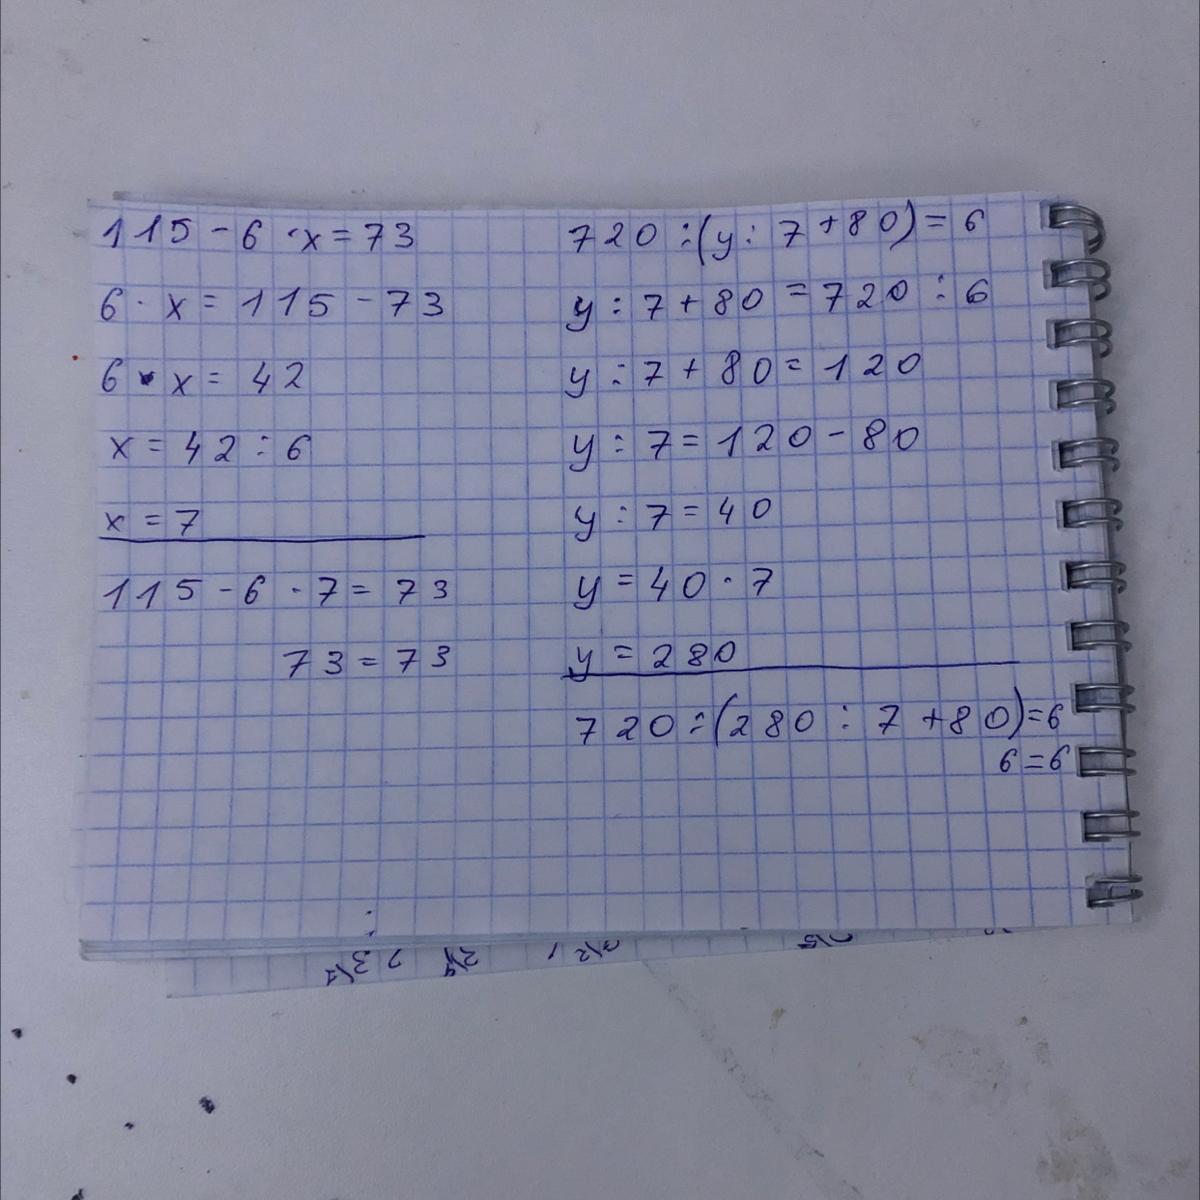 115 - 6 · x = 73
6 · x = 115 - 73
6 · x = 42
x = 42 : 6
x = 7
115 - 6 · 7 = 73
73 = 73
720 : (y : 7 + 80) = 6
y : 7 + 80 = 720 : 6
y : 7 + 80 = 120
y : 7 = 120 - 80
y : 7 = 40
y = 40 · 7
y = 280
720 : (280 : 7 + 80) = 6
6 = 6